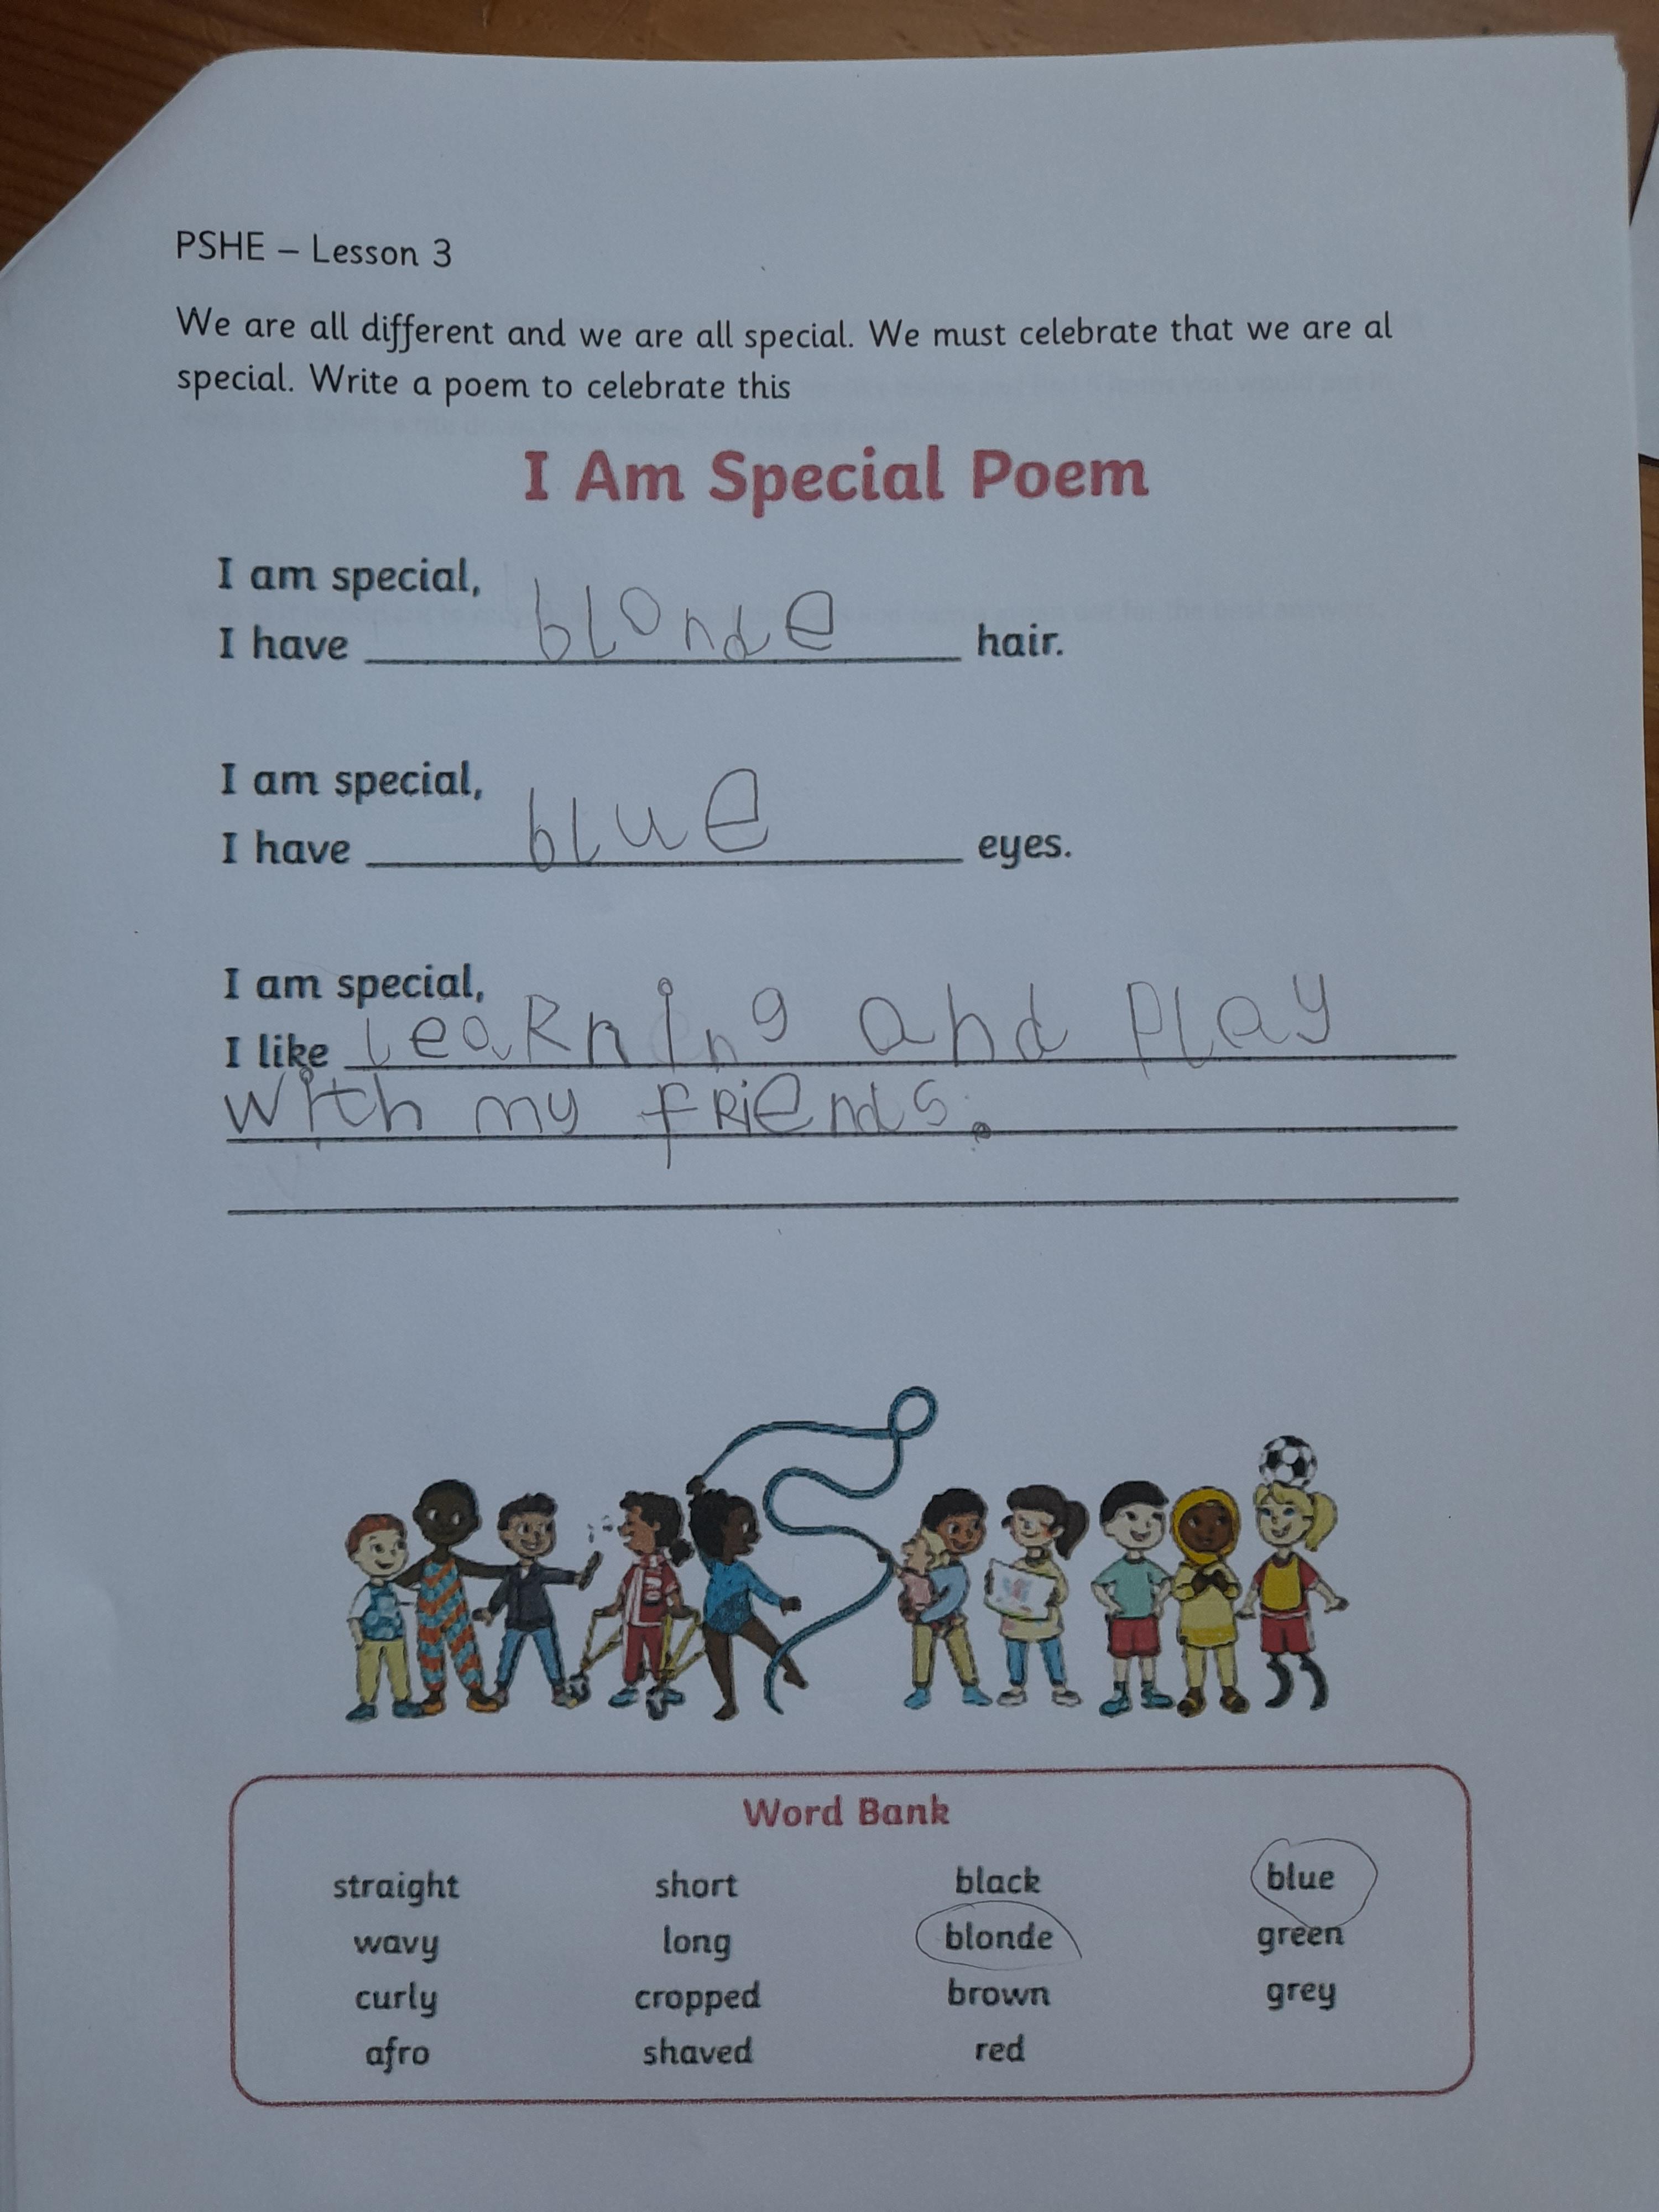 PSHE – Lesson 3
We are all different and we are all special. We must celebrate that we are al
special. Write a poem to celebrate this
I Am Special Poem
I am special,
I have blonde hair.
I am special,
I have blue eyes.
I am special,
I like learning and play
with my friends.
Word Bank
straight short black blue
wavy long blonde green
curly cropped brown grey
afro shaved red